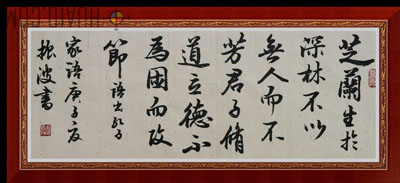 芝蘭生於
深林不以
無人而不
芳君子脩
道立德不
為困而改
節語出孔子
家語庚子夏
振波書